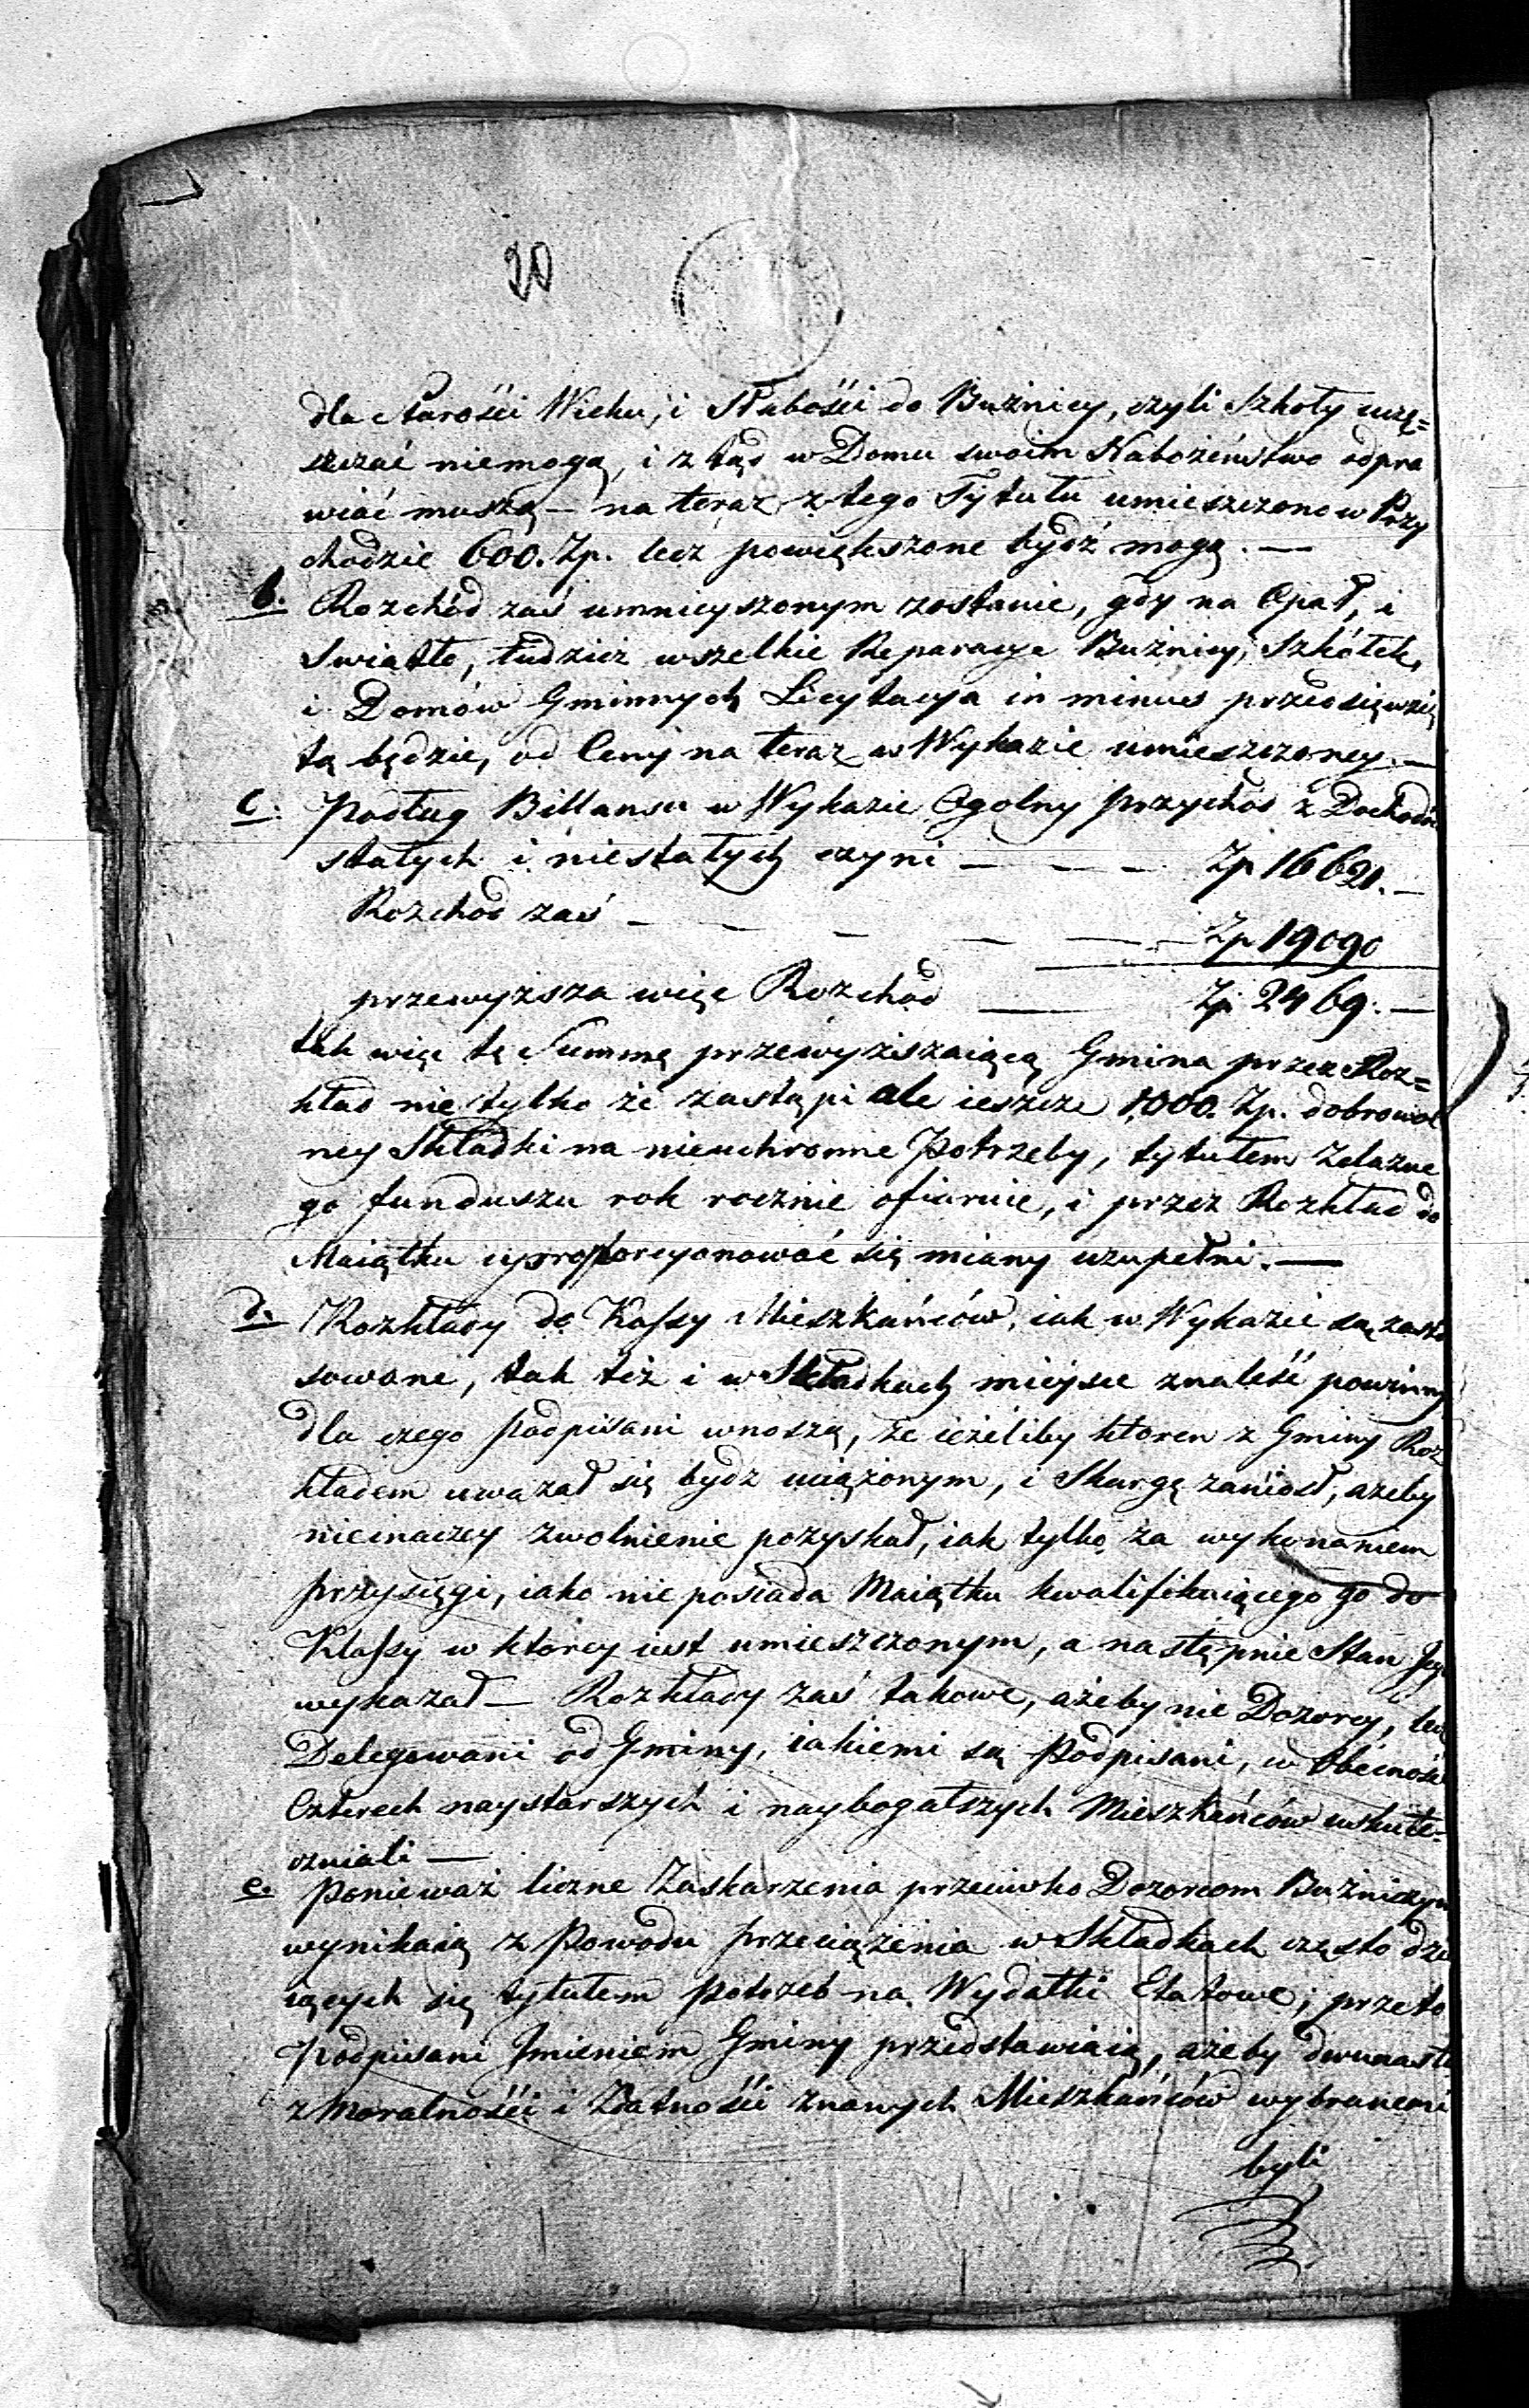 20
dla Starośći Wieku, i Słabośći do Bużnicy, czyli Szkoły uczę=
szczać niemogą, i z tąd w Domu swoim Nabożeństwo odpra
wiać muszą — na teraz z tego Tytułu umieszczono w Przy
chodzie 600. Zp. lecz powiększone bydź mogą. —
b. Rozchód zaś umnieyszonym zostanie, gdy na Opał, i
Swiatło, tudzież wszelkie Reparacye Bużnicy, Szkółek,
i Domów Gminnych Licytacya in minus przedsięwzię
tą będzie, od Ceny na teraz w Wykazie umieszczoney. —
c. Podług Billansu w Wykazie Ogolny przychód z Dochodów
stałych i niestałych czyni — — — Zp 16621. —
Rozchod zaś — — — — — Zp 19090
przewyższa więc Rozchód — Zp 2469. —
tak więc tę Summę przewyższaiącą Gmina przez Roz=
kład nie tylko że zastąpi ale ieszcze 1000. Zp. dobrowol
ney Składki na nieuchronne Potrzeby, tytułem Żelazne
go funduszu rok rocznie ofiaruie, i przez Rozkład do
Maiątku uproporcyonować się miany uzupełni. —
d. Rozkłady do Kassy Mieszkańców, iak w Wykazie są zasto
sowane, tak też i w Składkach mieysce znaleść powinny
dla czego podpisani wnoszą, że ieżeliby ktoren z Gminy Roz
kładem uważał się bydz uciążonym, i Skargę zaniosł, ażeby
nieinaczey zwolnienie pozyskał, iak tylko za wykonaniem
przysięgi, iako nie posiada Maiątku kwalifikuiącego go do
Klassy w ktorey iest umieszczonym, a następnie Stan Jego
wykazał — Rozkłady zaś takowe, ażeby nie Dozorcy, lecz
Delegowani od Gminy, iakiemi są Podpisani, w Obecnośći
Czterech naystarszych i naybogatszych Mieszkańców uskute=
czniali —
e. Ponieważ liczne Zaskarzenia przeciwko Dozorcom Bużniczym
wynikaią z Powodu przeciążenia w Składkach często dzie
iących się tytułem potrzeb na Wydatki Etatowe; przeto
Podpisani Imieniem Gminy przedstawiaią, ażeby dwunastu
z Moralnośći i Zdatnośći znanych Mieszkańców wybranemi
byli